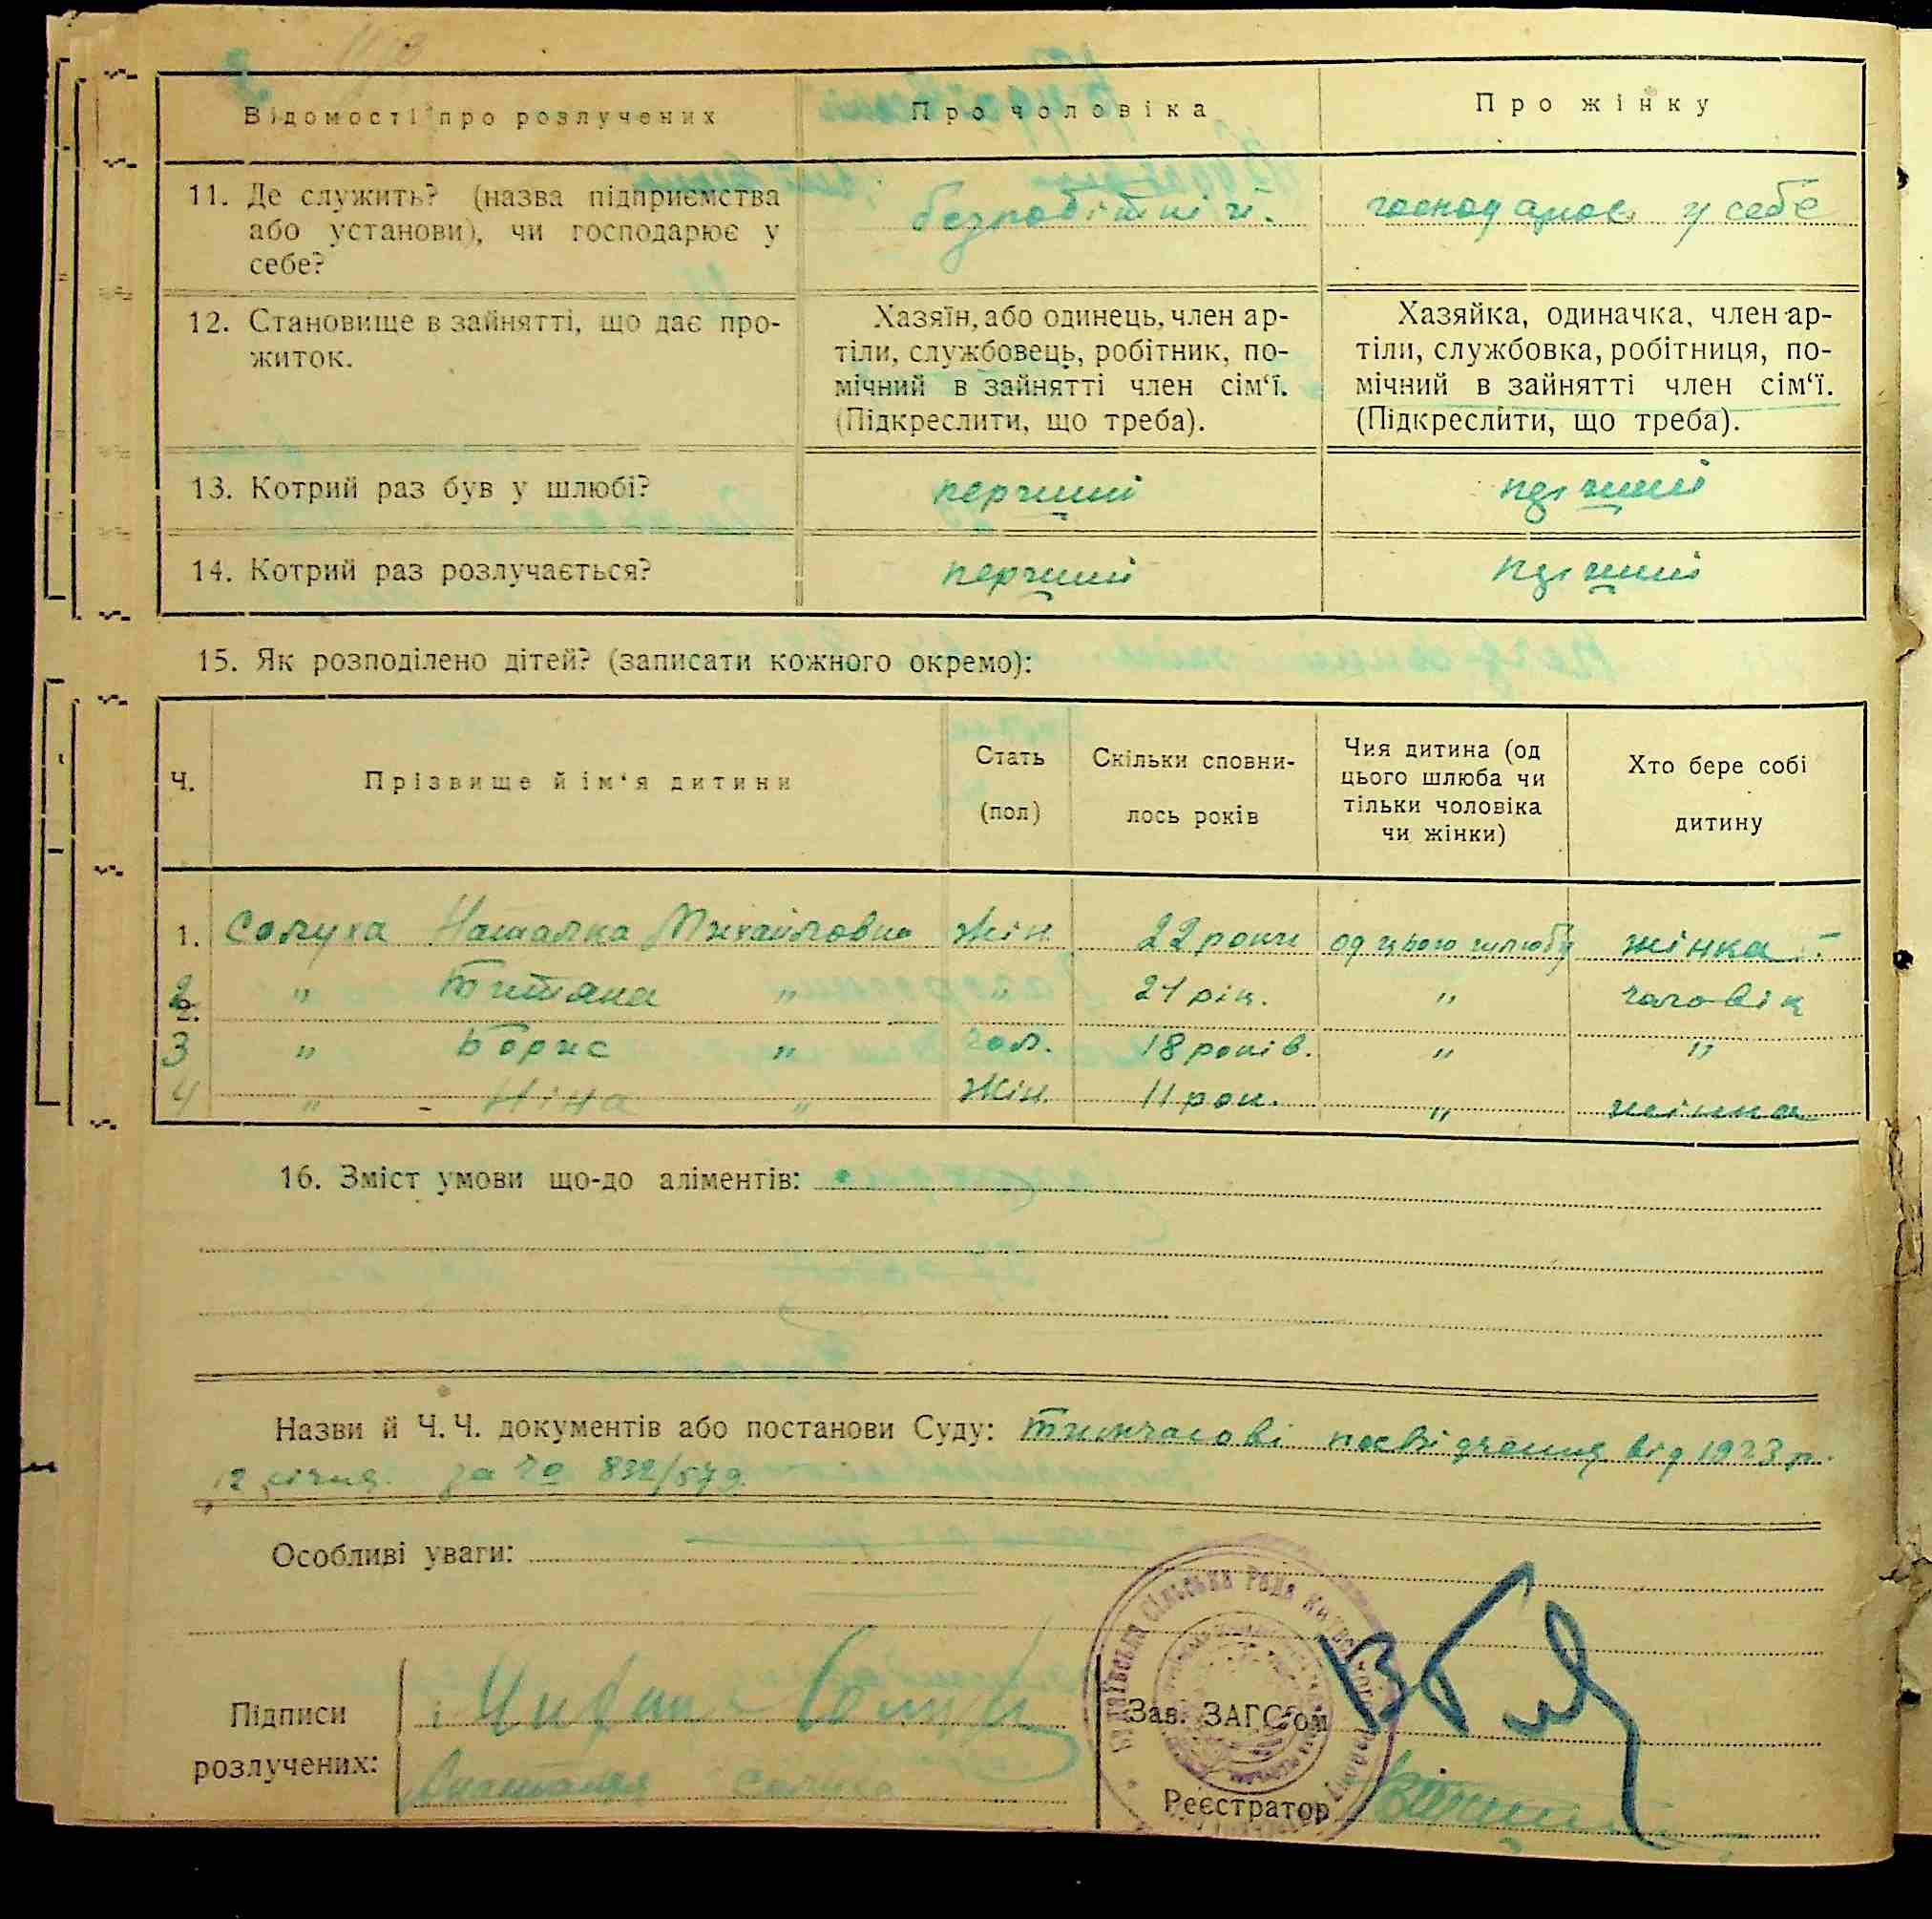 Відомості про розлучених
Про чоловіка
Про жінку
11. Де служить? (назва підприємства
або установи), чи господарює у
себе?
безробітній.
господарює у себе
12. Становище в зайнятті, що дає про-
житок.
Хазяїн, або одинець, член ар-
тіли, службовець, робітник, по-
мічний в зайнятті член сім‘ї.
(Підкреслити, що треба).
Хазяйка, одиначка, член ар-
тіли, службовка, робітниця, по-
мічний в зайнятті член сім‘ї.
(Підкреслити, що треба).
13. Котрий раз був у шлюбі?
перший
перший
14. Котрий раз розлучається?
перший
перший
15. Як розподілено дітей? (записати кожного окремо):
Ч.
Прізвище й ім‘я дитини
Стать
(пол)
Скільки сповни-
лось років
Чия дитина (од
цього шлюба чи
тільки чоловіка
чи жінки)
Хто бере собі
дитину
1. Солуха Наталка Михайловна жін. 22 роки од цього шлюбу жінка
2. " Титяна " " 21 рік. " чоловік
3 " Борис " чол. 18 років. " "
4 " Ніна " Жін. 11 рок. " жінка
16. Зміст умови що-до аліментів:
Назви й Ч. Ч. документів або постанови Суду: тимчасові посвідчення від 1923 р.
12 січня. за Чо 832/579.
Особливі уваги:
Підписи
розлучених:
Солуха
Зав. ЗАГС‘ом
Реєстратор
сільська Рада